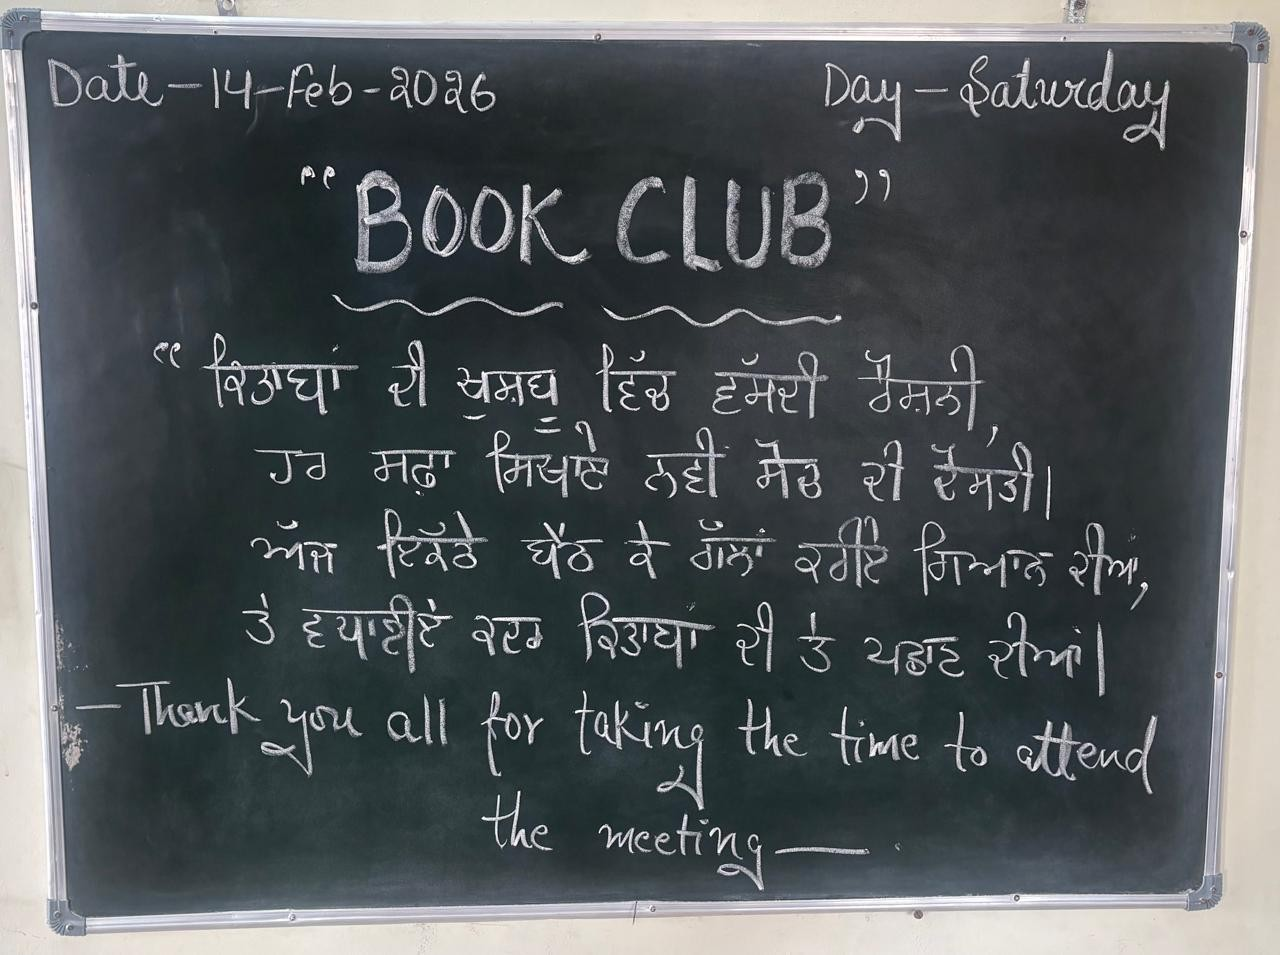 Date - 14 - Feb - 2026
Day - Saturday
"BOOK CLUB"
"ਕਿਤਾਬਾਂ ਦੀ ਖੁਸ਼ਬੂ ਵਿੱਚ ਵੱਸਦੀ ਰੌਸ਼ਨੀ,
ਹਰ ਸਫ਼ਾ ਸਿਖਾਏ ਨਵੀਂ ਸੋਚ ਦੀ ਦੋਸਤੀ।
ਅੱਜ ਇਕੱਠੇ ਬੈਠ ਕੇ ਗੱਲਾਂ ਕਰੀਏ ਗਿਆਨ ਦੀਆਂ,
ਤੇ ਵਧਾਈਏ ਕਦਰ ਕਿਤਾਬਾਂ ਦੀ ਤੇ ਪਛਾਣ ਦੀਆਂ।
- Thank you all for taking the time to attend
the meeting —